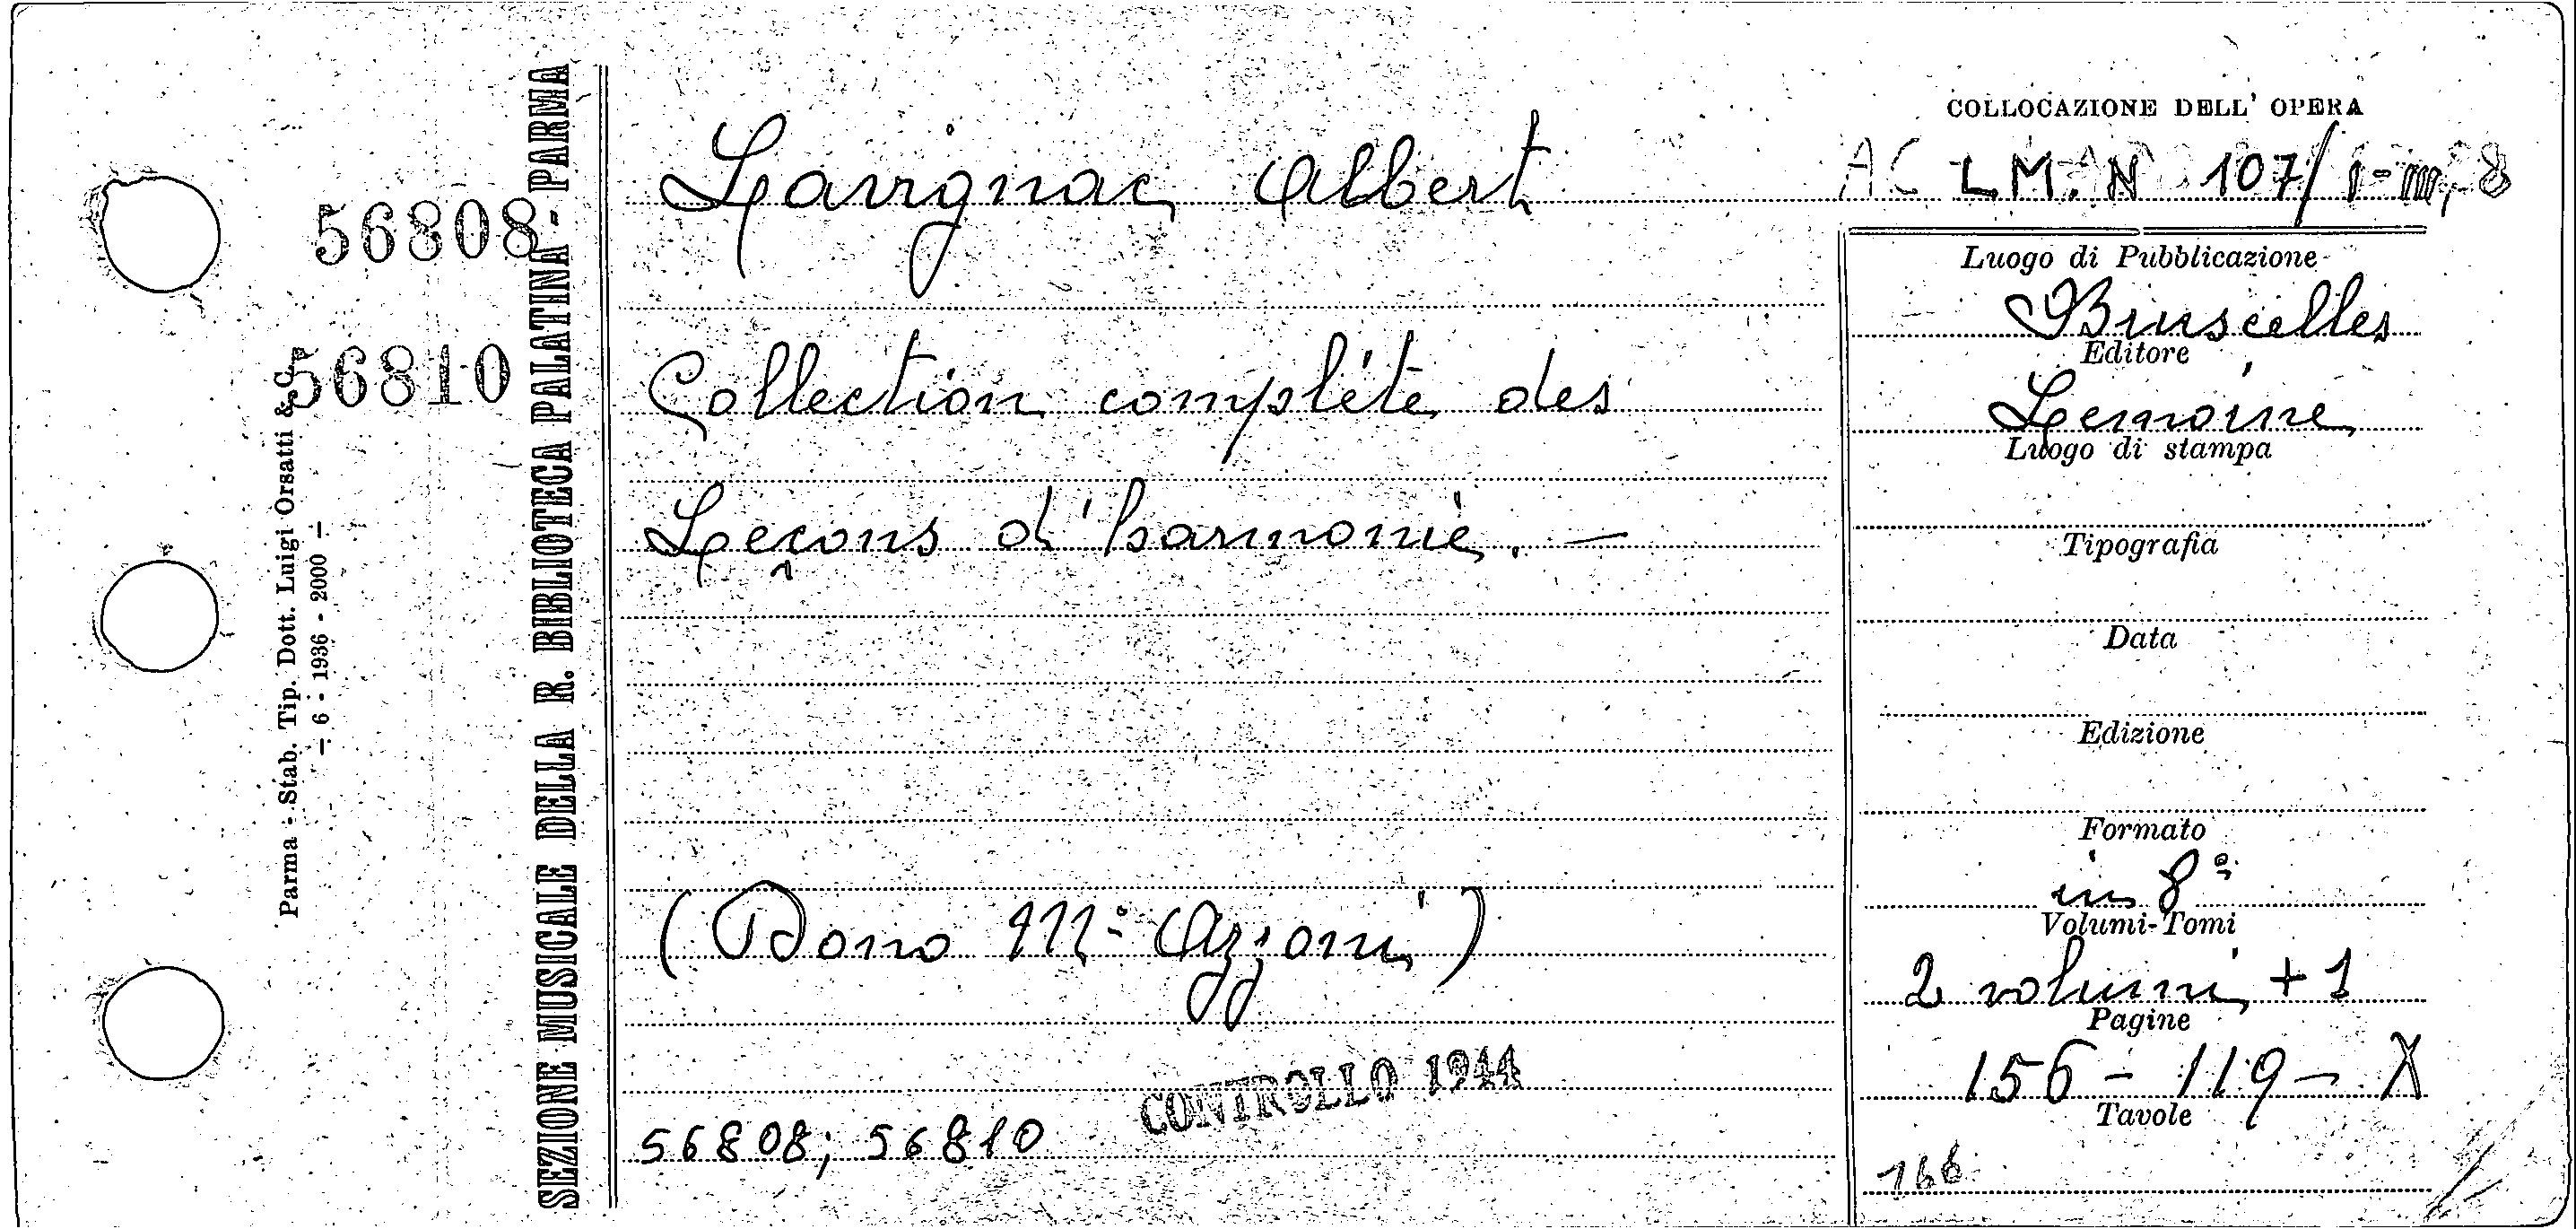 COLLOCAZIONE DELL' OPERA
Lavignac Albert
LM. N 107/I-III, 8
56808
56810
Parma - Stab. Tip. Dott. Luigi Orsatti & C.
- 6 - 1936 - 2000 -
SEZIONE MUSICALE DELLA R. BIBLIOTECA PALATINA - PARMA
Collection complète des
Leçons d'harmonie. —
(Dono M.º Azzoni)
CONTROLLO 1944
56808; 56810
Luogo di Pubblicazione
Bruscelles
Editore
Lemoine
Luogo di stampa
Tipografia
Data
Edizione
Formato
in 8º
Volumi-Tomi
2 volumi + 1
Pagine
156 - 119 - X
Tavole
166